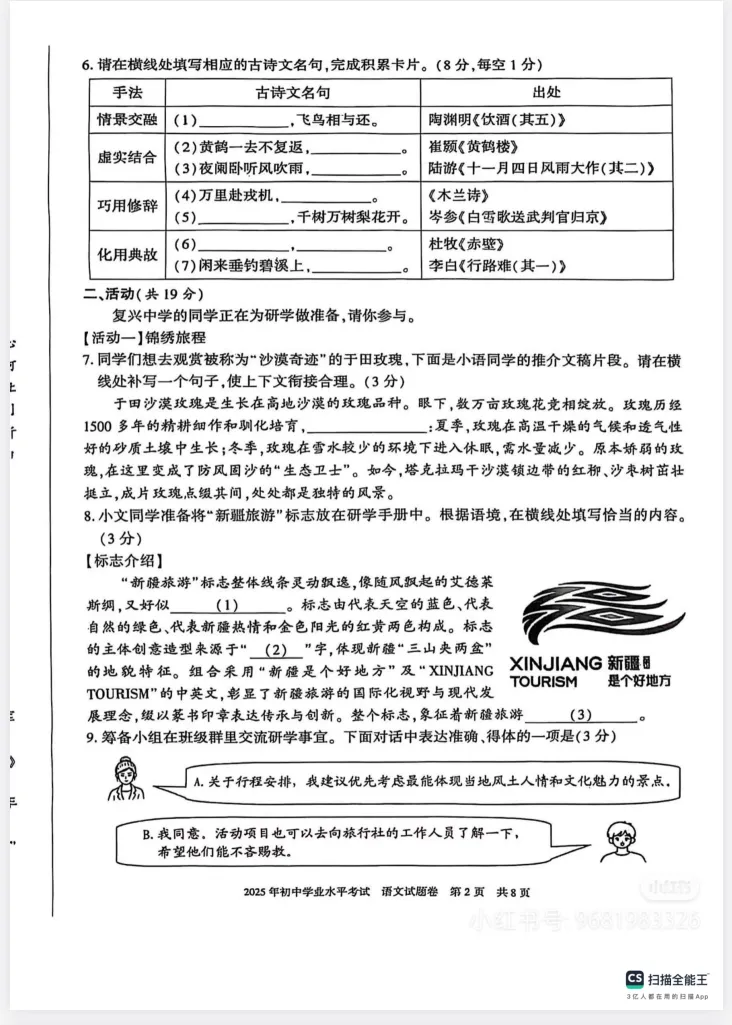 6. 请在横线处填写相应的古诗文名句,完成积累卡片。(8分,每空1分)
手法 古诗文名句 出处
情景交融 (1)__________,飞鸟相与还。 陶渊明《饮酒(其五)》
虚实结合 (2)黄鹤一去不复返,__________。 崔颢《黄鹤楼》
(3)夜阑卧听风吹雨,__________。 陆游《十一月四日风雨大作(其二)》
巧用修辞 (4)万里赴戎机,__________。 《木兰诗》
(5)__________,千树万树梨花开。 岑参《白雪歌送武判官归京》
化用典故 (6)__________,__________。 杜牧《赤壁》
(7)闲来垂钓碧溪上,__________。 李白《行路难(其一)》
二、活动(共19分)
复兴中学的同学正在为研学做准备,请你参与。
【活动一】锦绣旅程
7. 同学们想去观赏被称为“沙漠奇迹”的于田玫瑰,下面是小语同学的推介文稿片段。请在横
线处补写一个句子,使上下文衔接合理。(3分)
于田沙漠玫瑰是生长在高地沙漠的玫瑰品种。眼下,数万亩玫瑰花竞相绽放。玫瑰历经
1500多年的精耕细作和驯化培育,__________:夏季,玫瑰在高温干燥的气候和透气性
好的砂质土壤中生长;冬季,玫瑰在雪水较少的环境下进入休眠,需水量减少。原本娇弱的玫
瑰,在这里变成了防风固沙的“生态卫士”。如今,塔克拉玛干沙漠锁边带的红柳、沙枣树茁壮
挺立,成片玫瑰点缀其间,处处都是独特的风景。
8. 小文同学准备将“新疆旅游”标志放在研学手册中。根据语境,在横线处填写恰当的内容。
(3分)
【标志介绍】
“新疆旅游”标志整体线条灵动飘逸,像随风飘起的艾德莱
斯绸,又好似____(1)____。标志由代表天空的蓝色、代表
自然的绿色、代表新疆热情和金色阳光的红黄两色构成。标志
的主体创意造型来源于“__(2)__”字,体现新疆“三山夹两盆”
的地貌特征。组合采用“新疆是个好地方”及“XINJIANG
TOURISM”的中英文,彰显了新疆旅游的国际化视野与现代发
展理念,缀以篆书印章表达传承与创新。整个标志,象征着新疆旅游____(3)____。
XINJIANG 新疆
TOURISM 是个好地方
9. 筹备小组在班级群里交流研学事宜。下面对话中表达准确、得体的一项是(3分)
A. 关于行程安排,我建议优先考虑最能体现当地风土人情和文化魅力的景点。
B. 我同意。活动项目也可以去向旅行社的工作人员了解一下,
希望他们能不吝赐教。
2025年初中学业水平考试 语文试题卷 第2页 共8页
小红书
小红书号: 9681983326
CS 扫描全能王
3亿人都在用的扫描App